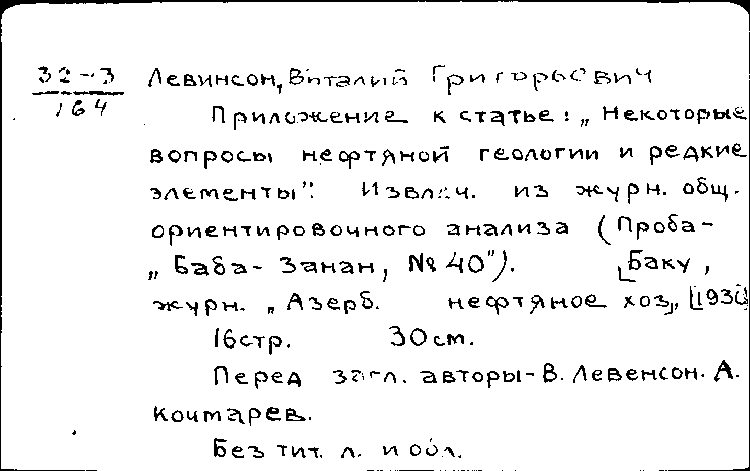 32-3 Левинсон, Виталий Григорьевич
164
Приложение к статье: „Некоторые
вопросы нефтяной геологии и редкие
элементы". Извлеч. из журн. общ.
ориентировочного анализа (Проба-
„Баба-Занан, № 40"). [Баку,
журн. „Азерб. нефтяное хоз„,
16стр. 30см.
Перед загл. авторы-В. Левенсон. А.
Кочмарев.
Без тит. л. и обл.